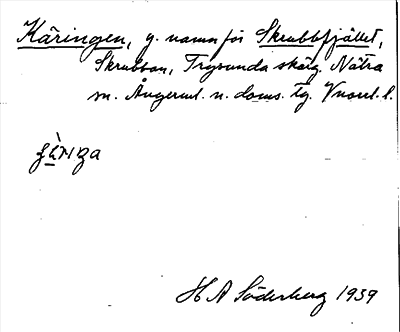 Käringen, g. namn för Skrubbfjället,
Skrubban, Trysunda skärg. Nätra
sn. Ångerml. n. doms. tg.
H A Söderberg 1939